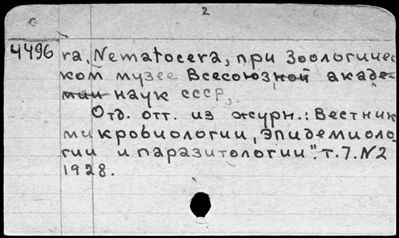 2
4496 ra, Nematocera, при Зоологичес
ком музее Всесоюзной акаде-
мии наук СССР,
Отд. отт. из журн.: Вестник
микробиологии, эпидемиоло
гии и паразитологии". т.7. N2
1928.